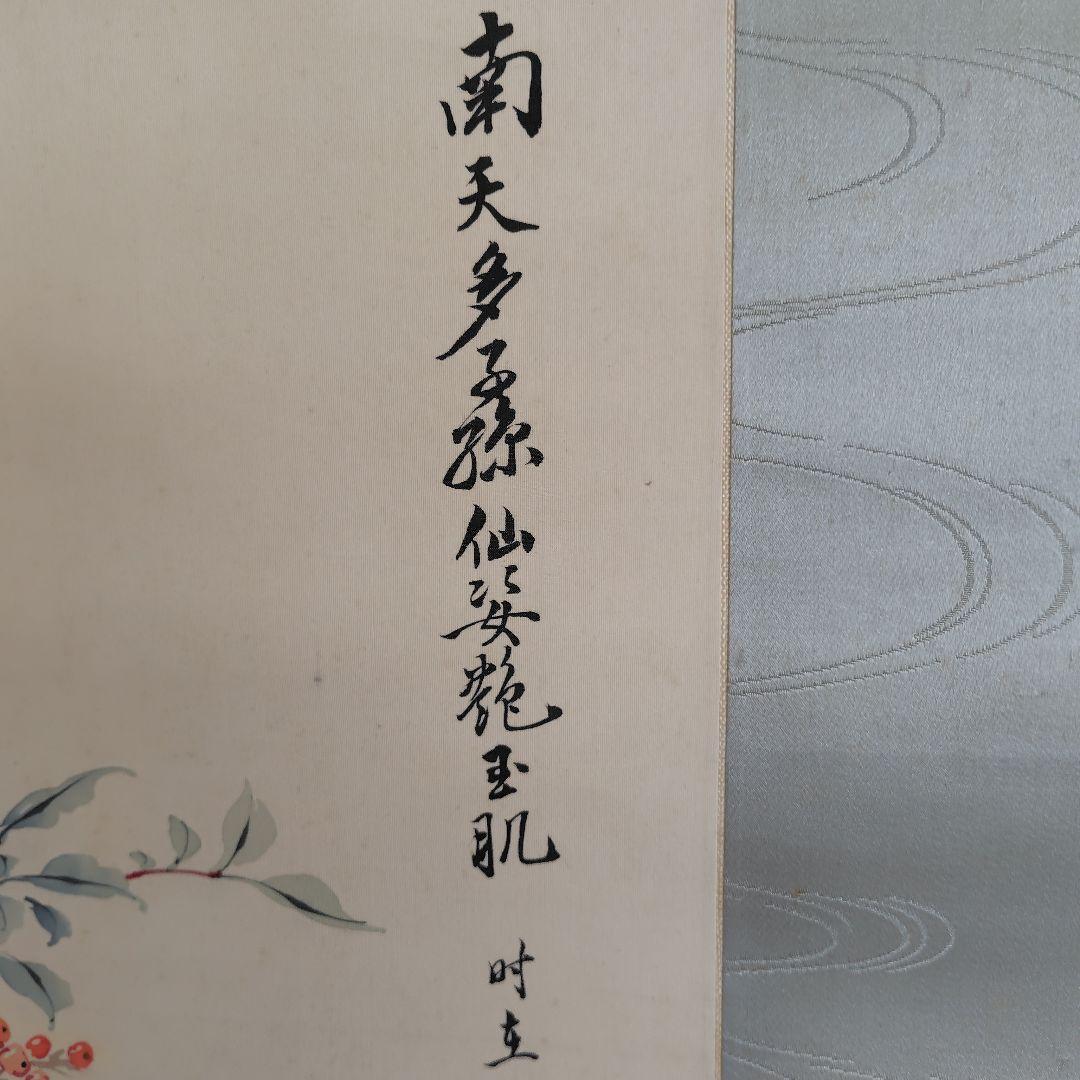 南天多子孫仙姿艶玉肌
时在